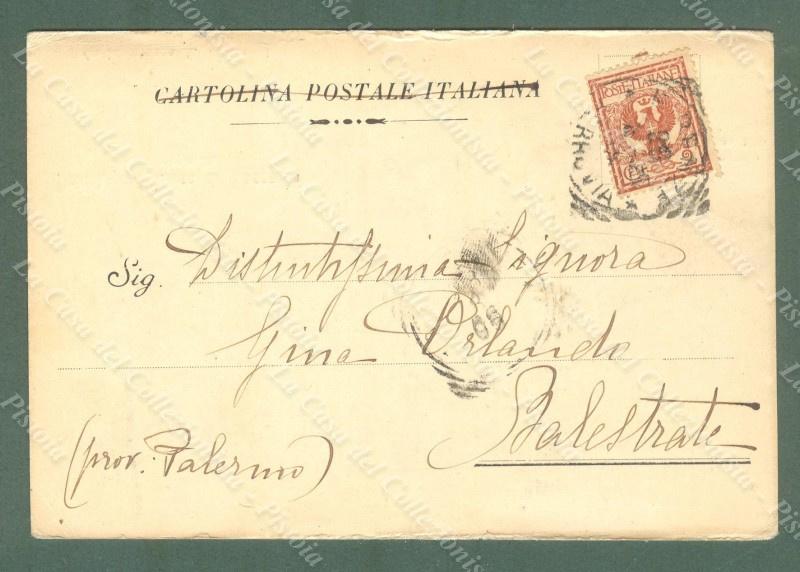 CARTOLINA POSTALE ITALIANA
POSTE ITALIANE
2
FERROVIA
Sig. Distintissima Signora
06
Gina Orlando
Balestrate
(prov. Palermo)
La Casa del Collezionista - Pistoia